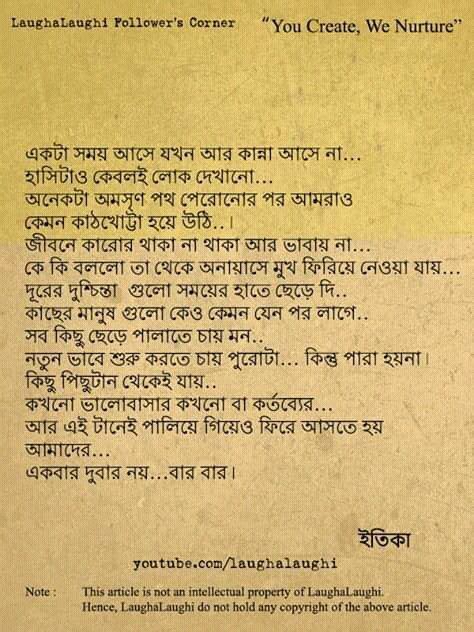 LaughaLaughi Follower's Corner
“You Create, We Nurture”
একটা সময় আসে যখন আর কান্না আসে না...
হাসিটাও কেবলই লোক দেখানো...
অনেকটা অমসৃণ পথ পেরোনোর পর আমরাও
কেমন কাঠখোট্টা হয়ে উঠি..।
জীবনে কারোর থাকা না থাকা আর ভাবায় না...
কে কি বললো তা থেকে অনায়াসে মুখ ফিরিয়ে নেওয়া যায়...
দূরের দুশ্চিন্তা গুলো সময়ের হাতে ছেড়ে দি..
কাছের মানুষ গুলো কেও কেমন যেন পর লাগে..
সব কিছু ছেড়ে পালাতে চায় মন..
নতুন ভাবে শুরু করতে চায় পুরোটা... কিন্তু পারা হয়না।
কিছু পিছুটান থেকেই যায়..
কখনো ভালোবাসার কখনো বা কর্তব্যের...
আর এই টানেই পালিয়ে গিয়েও ফিরে আসতে হয়
আমাদের...
একবার দুবার নয়...বার বার।
ইতিকা
youtube.com/laughalaughi
Note : This article is not an intellectual property of LaughaLaughi.
Hence, LaughaLaughi do not hold any copyright of the above article.